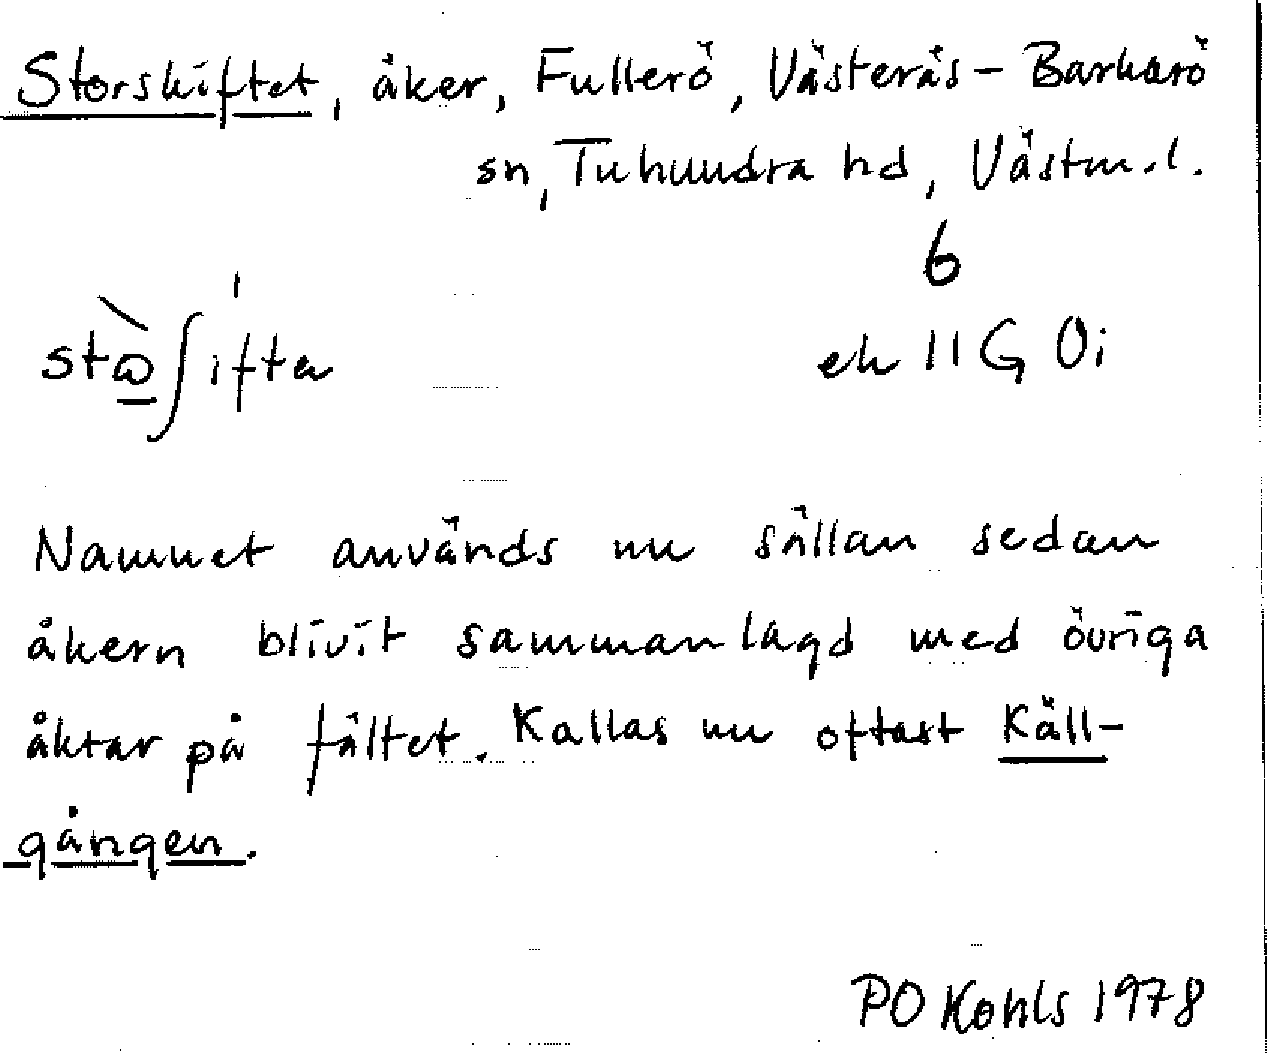 Storskiftet, åker, Fullerö, Västerås-Barkarö
sn, Tuhundra hd, Västm.l.
6
ek 11G 0i
Namnet används nu sällan sedan
åkern blivit sammanlagd med övriga
åkrar på fältet. Kallas nu oftast Käll-
gången.
PO Kohls 1978